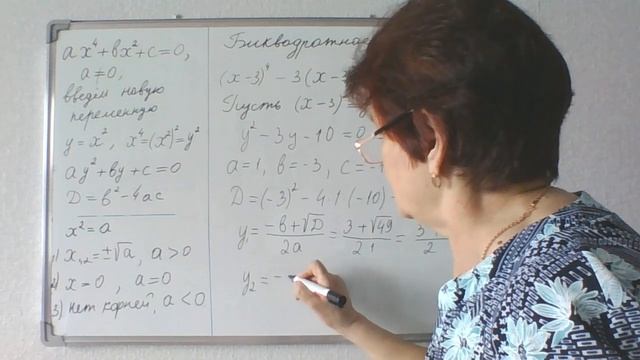 ax⁴+bx²+c=0,
a≠0,
введём новую
переменную
y=x², x⁴=(x²)²=y²
ay²+by+c=0
D=b²-4ac
x²=a
1) x₁,₂=±√a, a>0
2) x=0, a=0
3) нет корней, a<0
Биквадратное
(x-3)⁴-3(x-3
Пусть (x-3)
y²-3y-10=0
a=1, b=-3, c=-1
D=(-3)²-4·1·(-10)
y₁=(-b+√D)/2a=(3+√49)/2·1=3/2
y₂=-